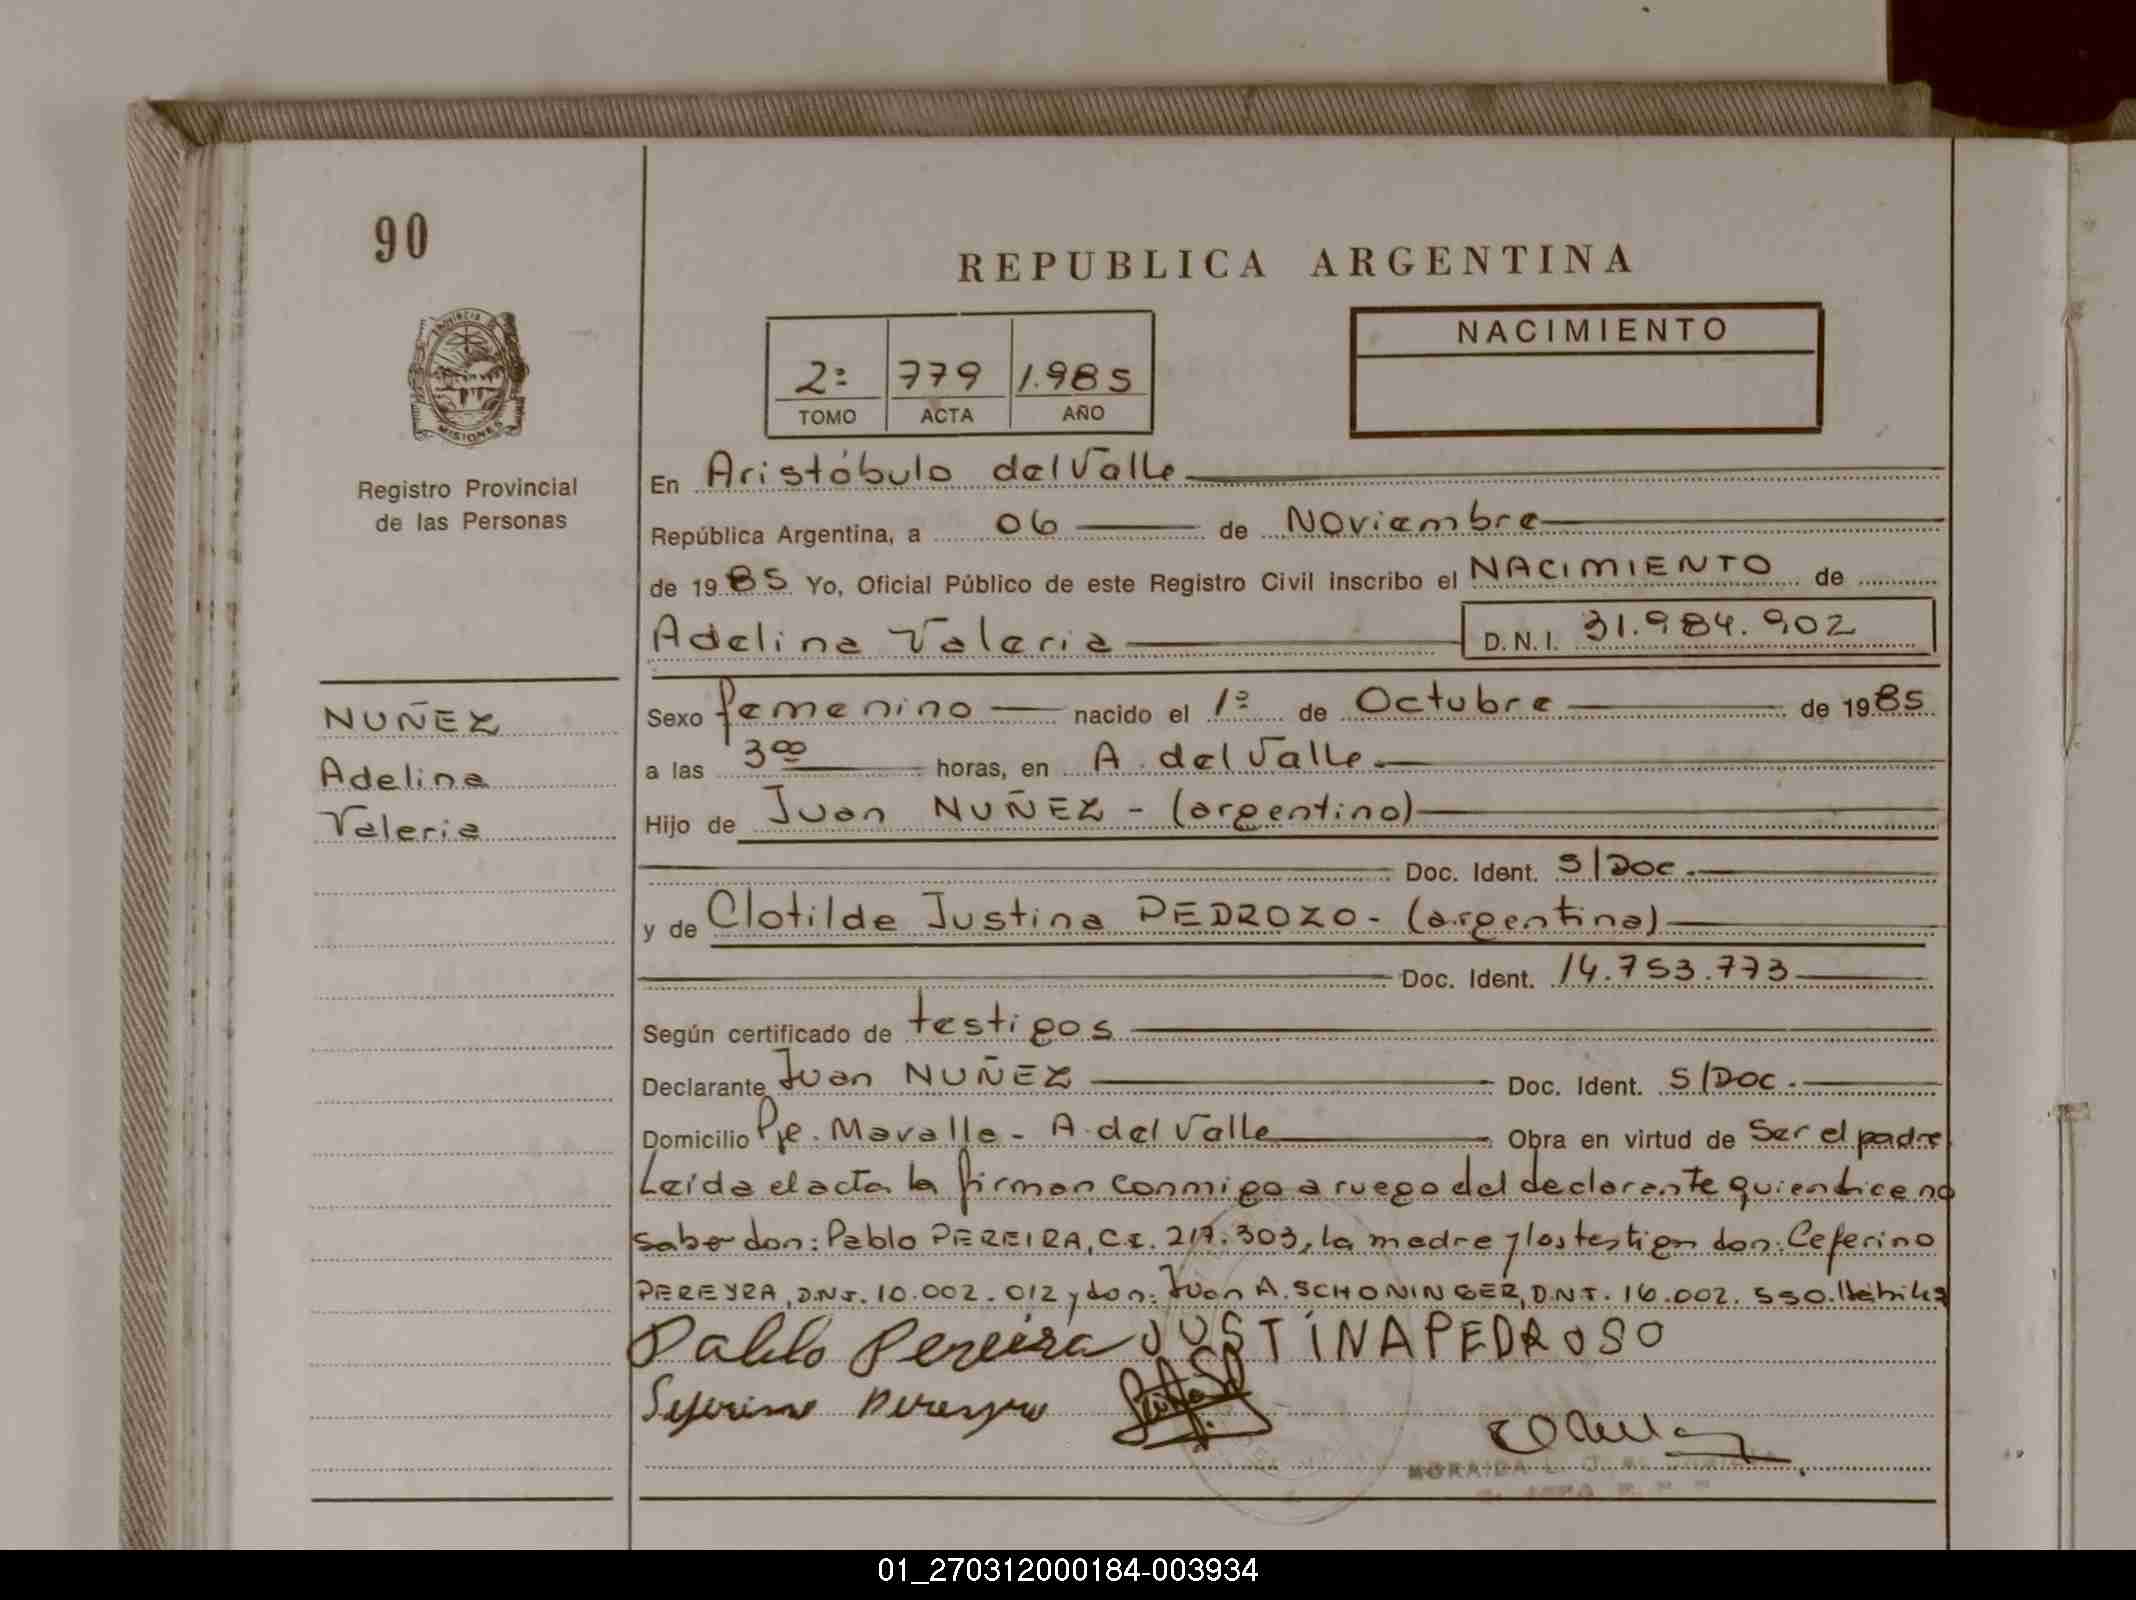 90
REPUBLICA ARGENTINA
PROVINCIA
MISIONES
Registro Provincial
de las Personas
2º 779 1.985
TOMO ACTA AÑO
NACIMIENTO
En Aristóbulo del Valle
República Argentina, a 06 de Noviembre
de 1985 Yo, Oficial Público de este Registro Civil inscribo el NACIMIENTO de
Adelina Valeria D.N.I. 31.984.902
NUÑEZ
Adelina
Valeria
Sexo femenino nacido el 1º de Octubre de 1985
a las 3⁰⁰ horas, en A. del Valle.
Hijo de Juan NUÑEZ - (argentino)
Doc. Ident. S/Doc.
y de Clotilde Justina PEDROZO - (argentina)
Doc. Ident. 14.753.773
Según certificado de testigos
Declarante Juan NUÑEZ Doc. Ident. S/Doc.
Domicilio Pje. Mavalle - A. del Valle Obra en virtud de Ser el padre
Leída el acta la firman conmigo a ruego del declarante quien dice no
saber don: Pablo PEREIRA, C.I. 217.303, la madre y los testigos don: Ceferino
PEREYRA, D.N.I. 10.002.012 y don: Juan A. SCHONINGER, D.N.I. 16.002.550. Hábiles
Pablo Pereira JUSTINA PEDROSO
Seferino Pereyra
01_270312000184-003934